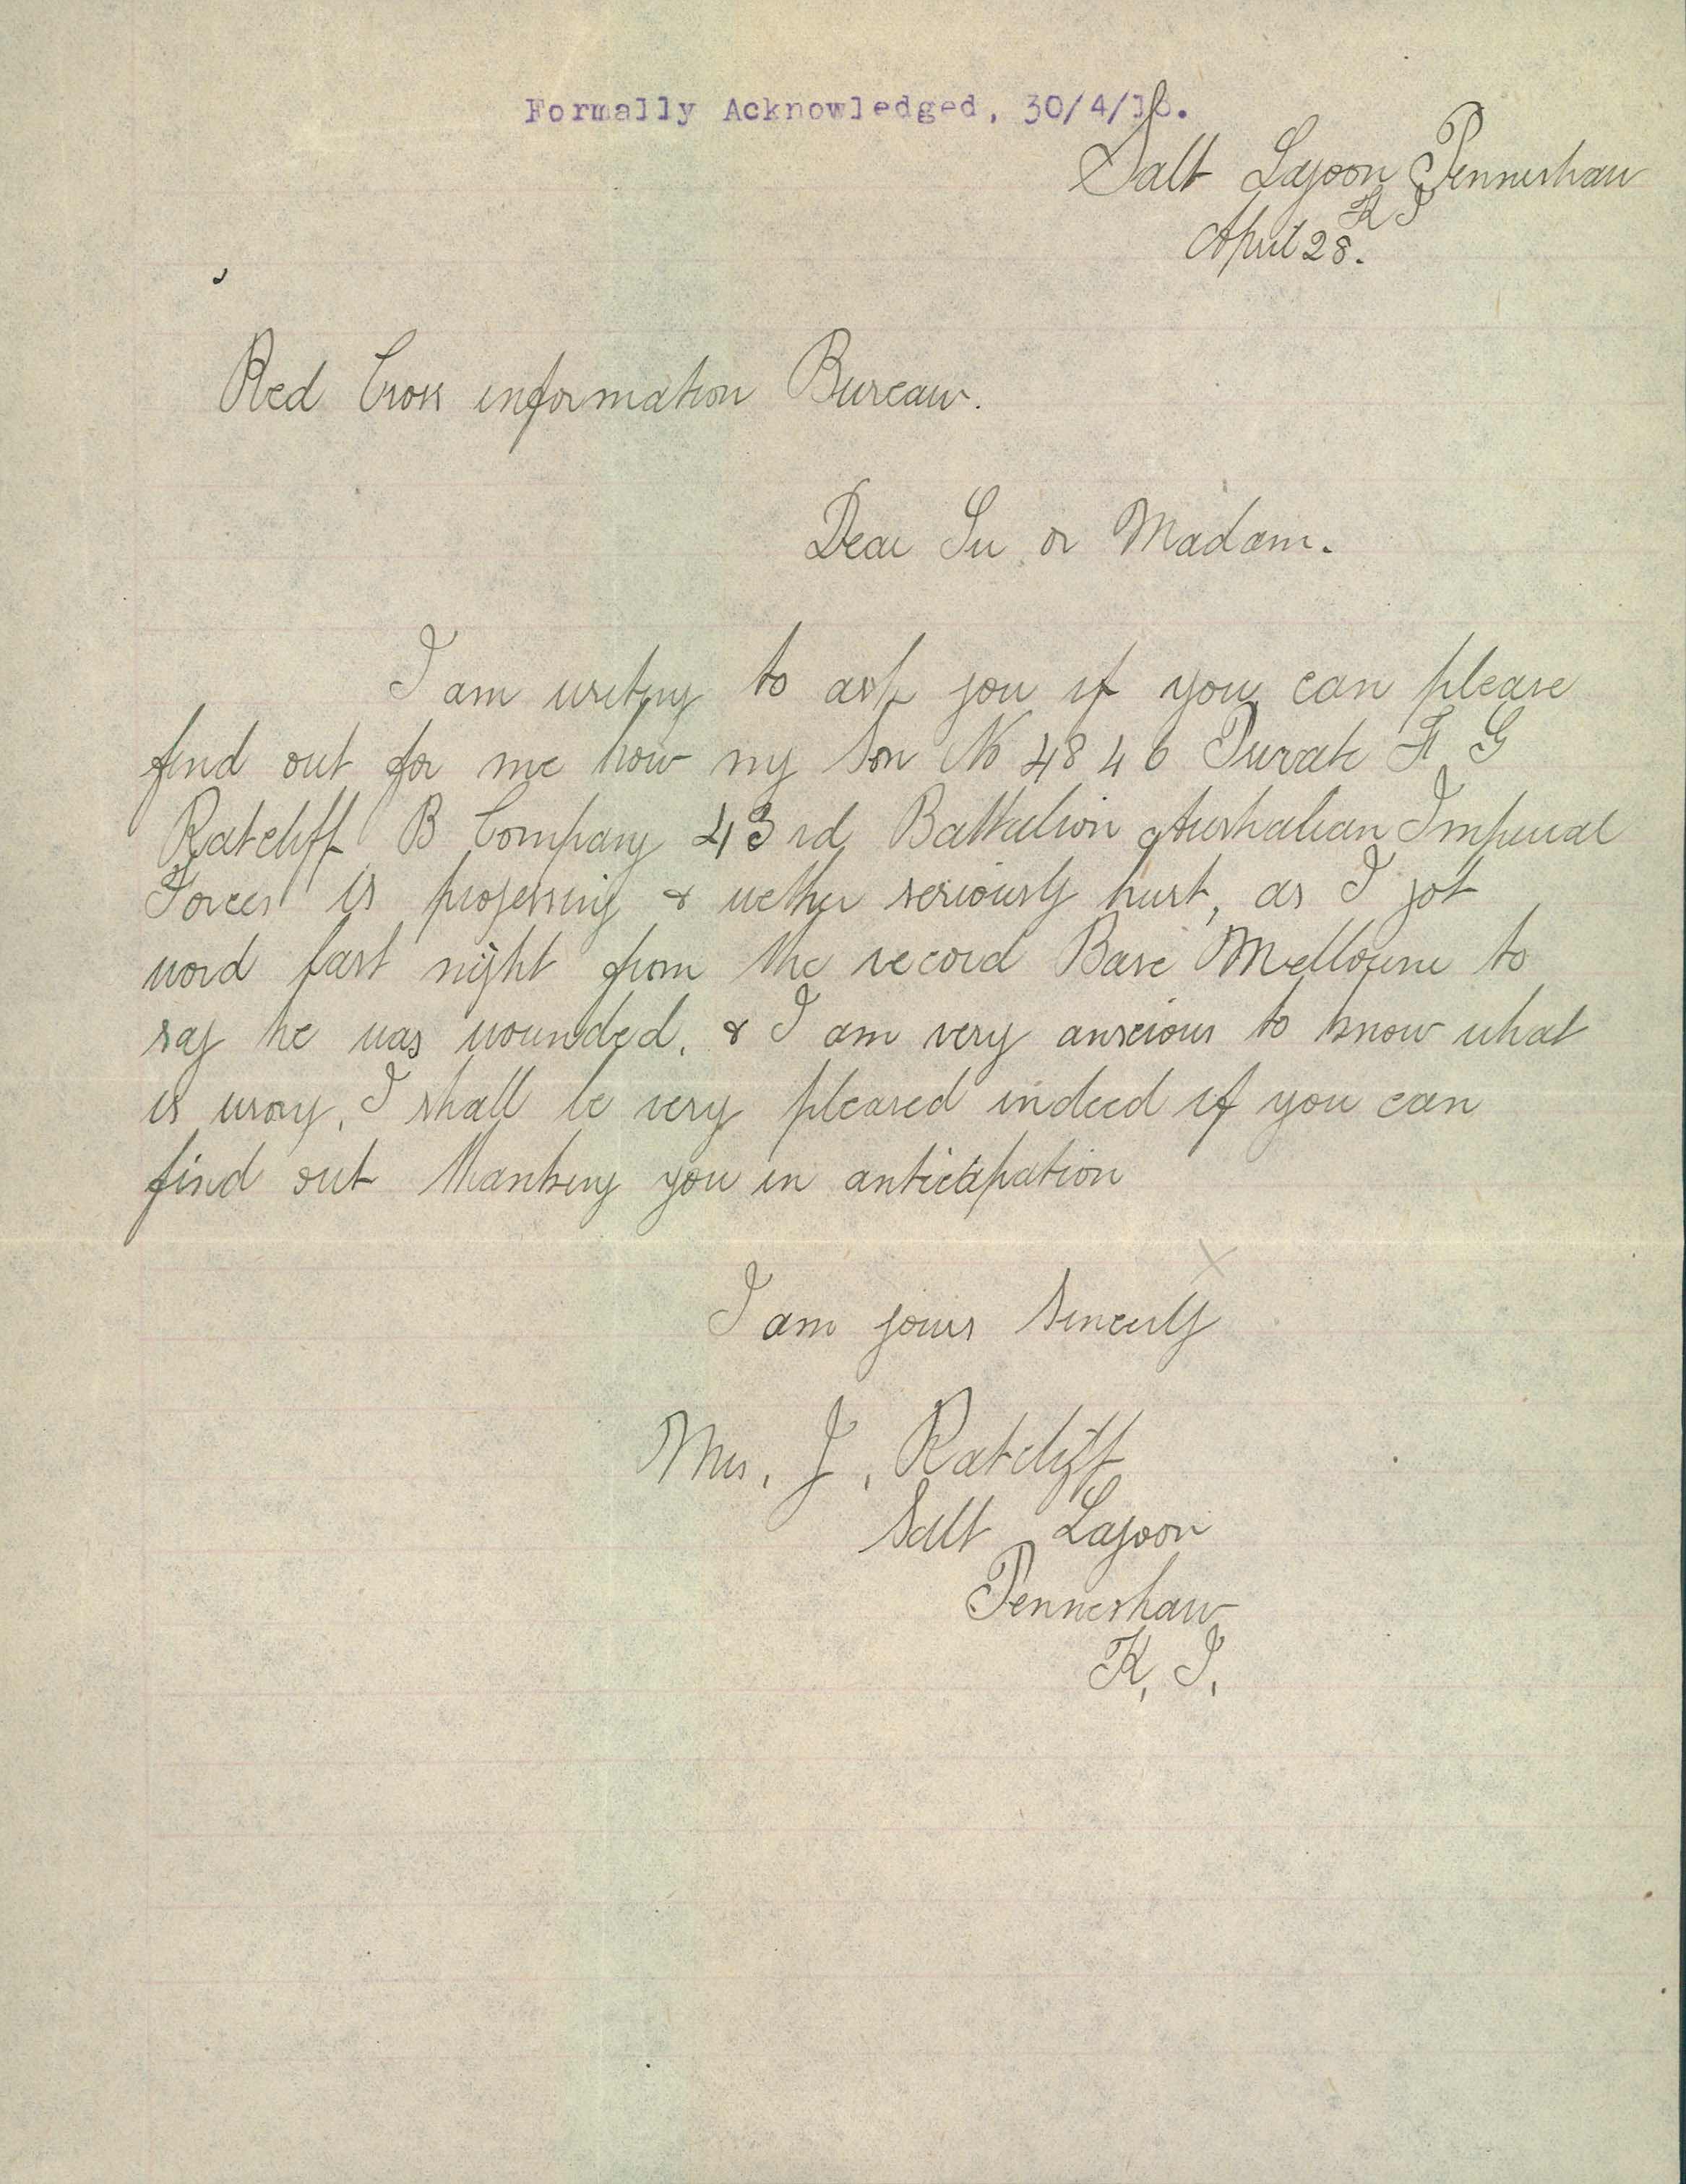 Formally Acknowledged, 30/4/18.
Salt Lagoon Penneshaw
K I
April 28.
Red Cross information Bureau.
Dear Sir or Madam.
I am writing to ask you if you can please
find out for me how my Son No 4846 Private F G
Ratcliff B Company 43rd Battalion Australian Imperial
Forces is progessing & wether seriously hurt, as I got
word last night from the record Base Melbourne to
say he was wounded. & I am very anxious to know what
is wrong, I shall be very pleased indeed if you can
find out thanking you in anticipation
I am yours Sincerly
Mrs. J. Ratcliff
Salt Lagoon
Penneshaw
K. I.